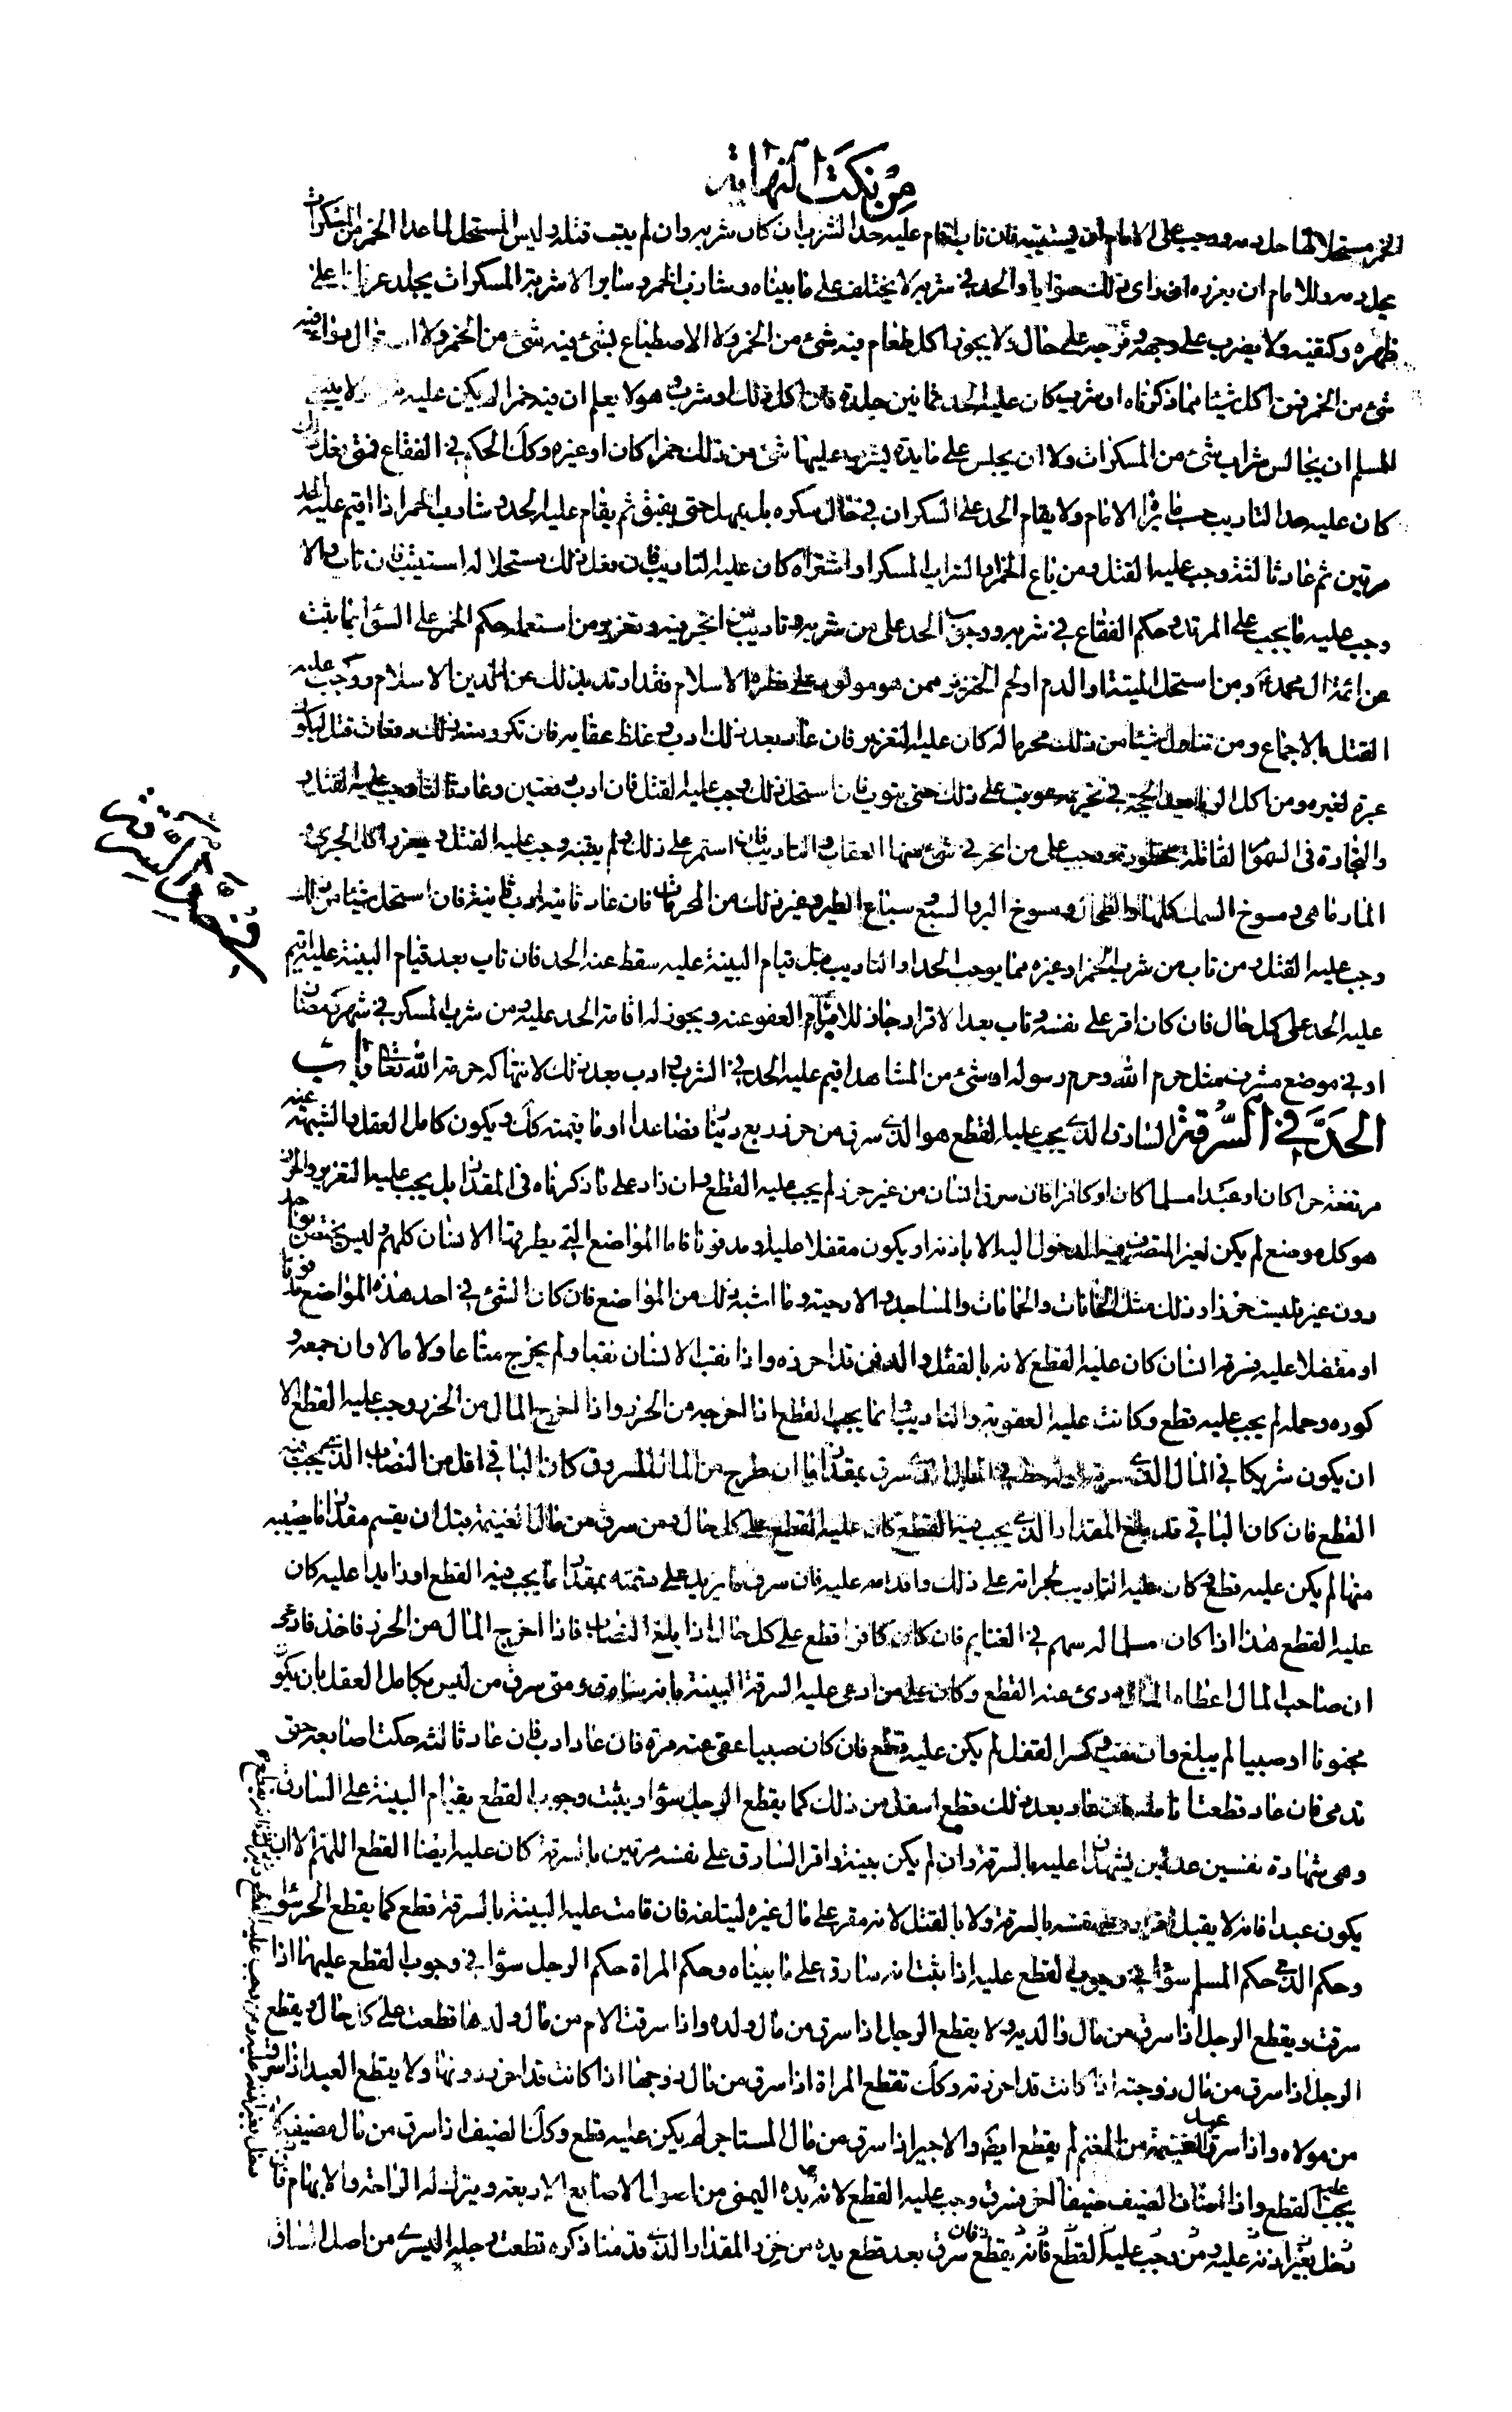 من نكت النهاية
الخمر مستحلا لها حل دمه ووجب على الامام ان يستتيبه فان تاب اقام عليه حد الشرب ان كان شربه وان لم يتب قتله وليس المستحل لما عدا الخمر من المسكرات
يحل دمه وللامام ان يعزره ان راى ذلك صوابا والحد في شربه لا يختلف على ما بيناه وشارب الخمر وساير الاشربة المسكرات يجلد عريانا على
ظهره وكتفيه ولا يضرب على وجهه وفرجه على حال ولا يجوز اكل طعام فيه شئ من الخمر ولا الاصطباغ بشئ فيه شئ من الخمر ولا استعمال دواء فيه
شئ من الخمر فمن اكل شيئا مما ذكرناه او شرب كان عليه الحد ثمانين جلدة فان اكل ذلك او شرب وهو لا يعلم ان فيه خمرا لم يكن عليه ولا ينبغي
للمسلم ان يجالس شراب شئ من المسكرات ولا ان يجلس على مايدة يشرب عليها شئ من ذلك خمرا كان او غيره وكك الحكم في الفقاع فمتى فعل ذلك
كان عليه التاديب حسب ما يراه الامام ولا يقام الحد على السكران في حال سكره بل يمهل حتى يفيق ثم يقام عليه الحد وشارب الخمر اذا اقيم عليه الحد
مرتين ثم عاد ثالثة وجب عليه القتل ومن باع الخمر او الشراب المسكر او اشتراه كان عليه التاديب فان فعل ذلك مستحلا له استتيب فان تاب والا
وجب عليه ما يجب على المرتد وحكم الفقاع في شربه ووجوب الحد على من شربه وتاديب من اتجر فيه وتعزير من استعمله حكم الخمر على السواء بما يثبت
عن ائمة ال محمد ومن استحل الميتة او الدم او لحم الخنزير ممن هو مولود على فطرة الاسلام فقد ارتد بذلك عن الدين الاسلام ووجب عليه
القتل بالاجماع ومن تناول شيئا من ذلك محرما له كان عليه التعزير فان عاد بعد ذلك ادب وغلظ عقابه فان تكرر منه ذلك دفعات قتل ليكون
عبرة لغيره ومن اكل الربا بعد الحجة في تحريمه عوقب على ذلك حتى يتوب فان استحل ذلك وجب عليه القتل فان ادب دفعتين وعاد ثالثا وجب عليه القتل و
والتجارة في السموم القاتلة محظورة ووجب على من اتجر في شئ منها العقاب والتاديب فان استمر على ذلك ولم ينته وجب عليه القتل ويعزر اكل الجري و
المارماهي ومسوخ السمك كلها والطحال ومسوخ البر والسبع سباع الطير وغير ذلك من المحرمات فان عاد ثانية ادب ثانية فان استحل شيئا من ذلك
وجب عليه القتل ومن تاب من شرب الخمر او غيره مما يوجب الحد او التاديب قبل قيام البينة عليه سقط عنه الحد فان تاب بعد قيام البينة عليه اقيم
عليه الحد على كل حال فان كان اقر على نفسه وتاب بعد الاقرار جاز للامام العفو عنه ويجوز له اقامة الحد عليه ومن شرب المسكر في شهر رمضان
او في موضع مشرف مثل حرم الله وحرم رسوله او شئ من المشاهد اقيم عليه الحد في الشرب وادب بعد ذلك لانتهاكه حرمة الله تعالى باب
الحد في السرقة السارق الذي يجب عليه القطع هو الذي سرق من حرز ربع دينار فصاعدا او ما قيمته كك ويكون كامل العقل والشبهة عنه
مرتفعة حرا كان او عبدا مسلما كان او كافرا فان سرق انسان من غير حرز لم يجب عليه القطع وان زاد على ما ذكرناه في المقدار بل يجب عليه التعزير والحرز
هو كل موضع لم يكن لغير المتصرف فيه الدخول اليه الا باذنه او يكون مقفلا عليه او مدفونا فاما المواضع التي يطرقها الانسان كلهم وليس يختص بواحد
دون غيره فليست حرزا وذلك مثل الخانات والحمامات والمساجد والارحية وما اشبه ذلك من المواضع فان كان الشئ في احد هذه المواضع مدفونا
او مقفلا عليه فسرقه انسان كان عليه القطع لانه بالقفل والدفن قد احرزه واذا نقب الانسان نقبا ولم يخرج متاعا ولا مالا وان جمعه و
كوره وحمله لم يجب عليه قطع وكانت عليه العقوبة والتاديب وانما يجب القطع اذا اخرجه من الحرز واذا اخرج المال من الحرز وجب عليه القطع الا
ان يكون شريكا في المال الذي سرقه او له حظ في المال الذي سرق بمقدار ما ان طرح من المال المسروق كان الباقي اقل من النصاب الذي يجب فيه
القطع فان كان الباقي قد بلغ المقدار الذي يجب فيه القطع كان عليه القطع على كل حال ومن سرق من مال الغنيمة قبل ان يقسم مقدار ما يصيبه
منها لم يكن عليه قطع وكان عليه التاديب لجراته على ذلك واقدامه عليه فان سرق ما يزيد على قسمته بمقدار ما يجب فيه القطع او زايدا عليه كان
عليه القطع هذا اذا كان مسلما له سهم في الغنايم فان كان كافرا قطع على كل حال اذا بلغ النصاب فاذا اخرج المال من الحرز فاخذ فادعى
ان صاحب المال اعطاه المال درئ عنه القطع وكان على من ادعى عليه السرقة البينة بانه سارق ومتى سرق من ليس بكامل العقل بان يكون
مجنونا او صبيا لم يبلغ وان نقب وكسر القفل لم يكن عليه قطع فان كان صبيا عفى عنه مرة فان عاد ادب فان عاد ثالثة حكت اصابعه حتى
تدمى فان عاد قطعت انامله فان عاد بعد ذلك قطع اسفل من ذلك كما يقطع الرجل سواء ويثبت وجوب القطع بقيام البينة على السارق
وهي شهادة نفسين عدلين يشهدان عليه بالسرقة وان لم يكن بينة واقر السارق على نفسه مرتين بالسرقة كان عليه ايضا القطع اللهم الا ان
يكون عبدا فانه لا يقبل اقراره على نفسه بالسرقة ولا بالقتل لانه مقر على مال غيره ليتلفه فان قامت عليه البينة بالسرقة قطع كما يقطع الحر سواء
وحكم الذمي حكم المسلم سواء في وجوب القطع عليه اذا ثبت انه سارق على ما بيناه وحكم المراة حكم الرجل سواء في وجوب القطع عليهما اذا
سرقت ويقطع الرجل اذا سرق من مال والديه ولا يقطع الرجل اذا سرق من مال ولده واذا سرقت الام من مال ولدها قطعت على كل حال ويقطع
الرجل اذا سرق من مال زوجته اذا كانت قد احرزته وكك تقطع المراة اذا سرق من مال زوجها اذا كانت قد احرز دونها ولا يقطع العبد اذا سرق
من مولاه واذا سرق عبد الغنيمة من المغنم لم يقطع ايضا والاجير اذا سرق من مال المستاجر لم يكن عليه قطع وكك الضيف اذا سرق من مال مضيفه لا
يجب عليه القطع واذا اضاف الضيف ضيفا اخر فسرق وجب عليه القطع لانه يده اليمنى من اصول الاصابع الاربعة ويترك له الراحة والابهام فان
دخل بغير اذنه عليه ومن وجب عليه القطع فانه يقطع فان سرق بعد قطع يده من حرز المقدار الذي قدمنا ذكره قطعت رجله اليسرى من اصل الساق